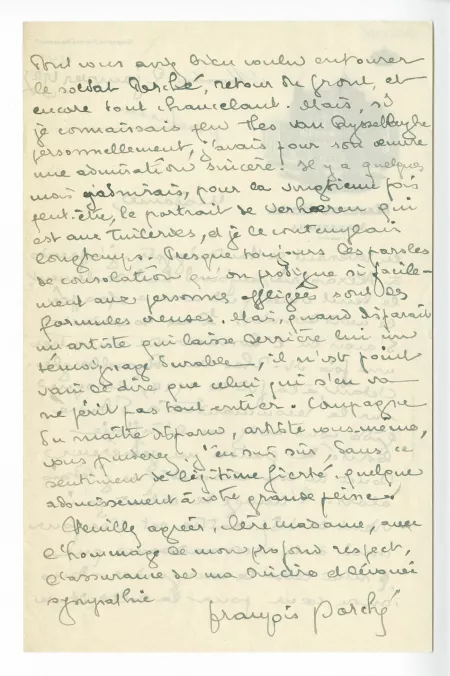 Dont vous avez bien voulu entourer
le soldat Porché, retour du front, et
encore tout chancelant. Mais, si
je connaissais peu Theo van Rysselberghe
personnellement, j'avais pour son œuvre
une admiration sincère. Il y a quelques
mois j'admirais, pour la vingtième fois
peut-être, le portrait de Verhaeren qui
est aux Tuileries, et je le contemplais
longtemps. Presque toujours les paroles
de consolation qu'on prodigue si facile-
ment aux personnes affligées sont des
formules creuses. Mais, quand disparaît
un artiste qui laisse derrière lui un
témoignage durable, il n'est point
vain de dire que celui qui s'en va
ne périt pas tout entier. Compagne
du maître disparu, artiste vous-même,
vous puiserez, j'en suis sûr, dans ce
sentiment de légitime fierté, quelque
adoucissement à votre grande peine.
Veuillez agréer, chère madame, avec
l'hommage de mon profond respect,
l'assurance de ma sincère et dévouée
sympathie
François Porché